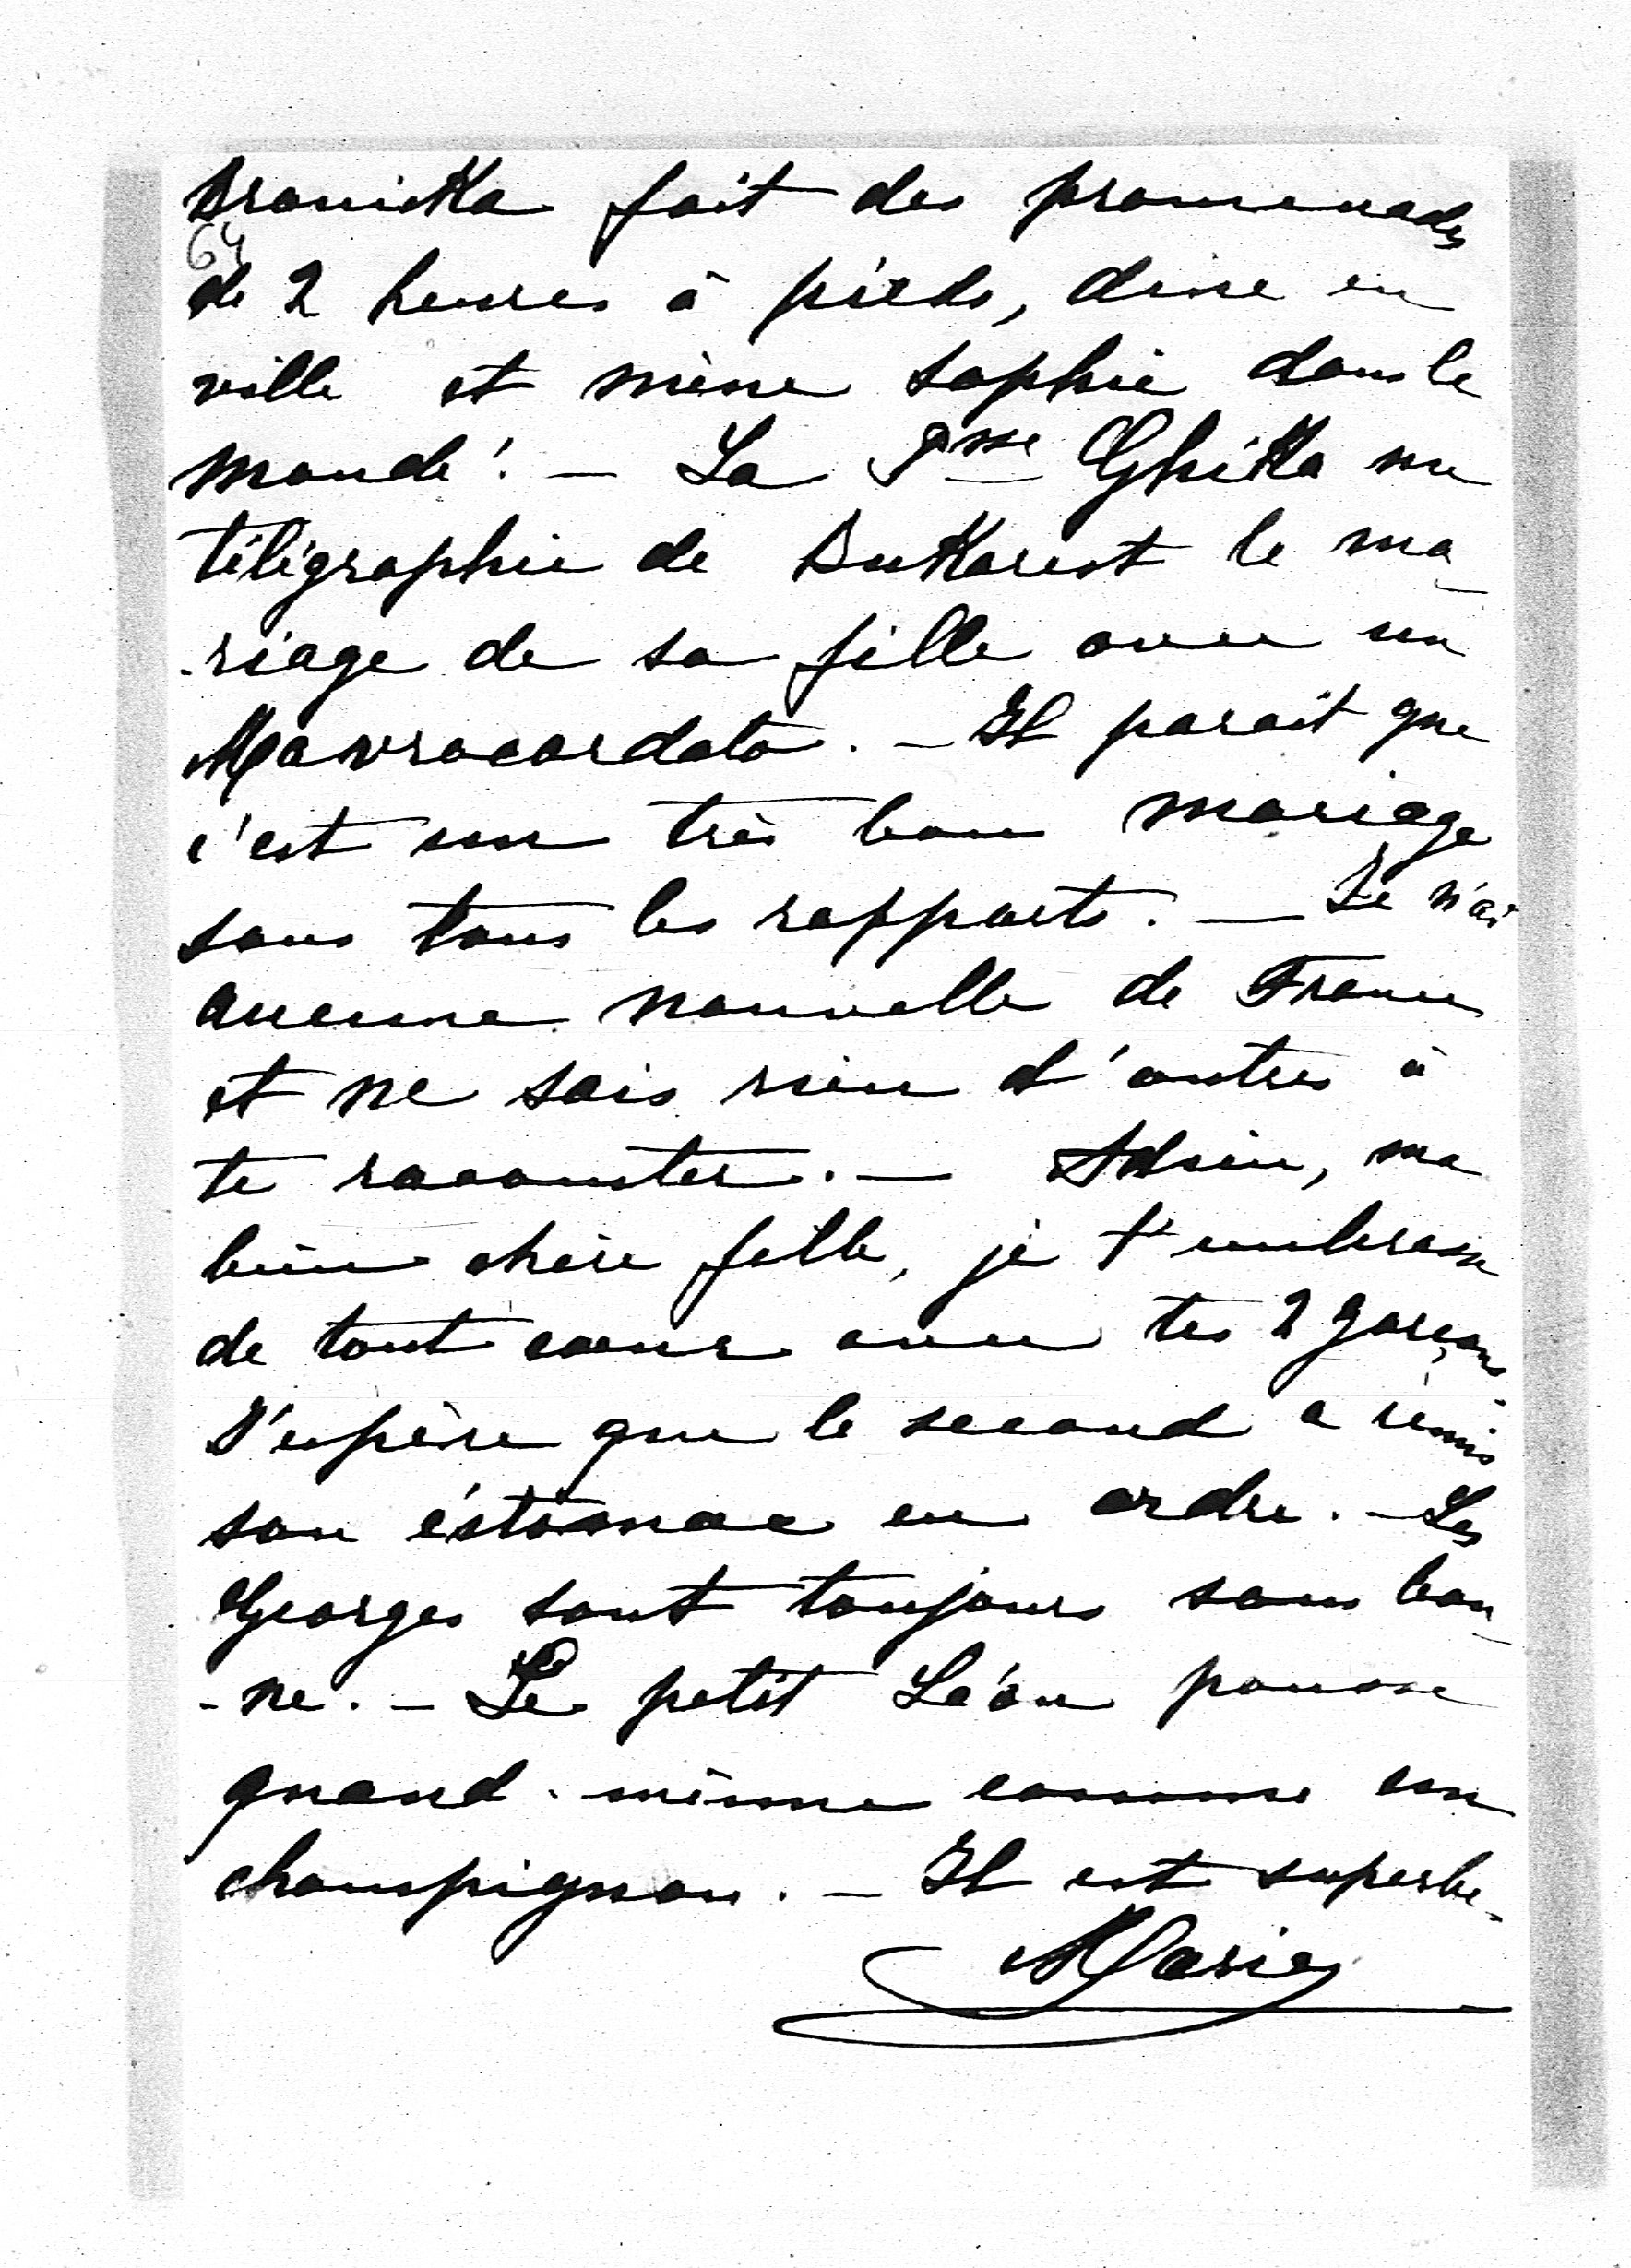 Branicka fait des promenades
64
de 2 heures à pieds, dine en
ville et mène Sophie dans le
monde! — La Psse Ghika me
télégraphie de Bukarest le ma-
-riage de sa fille avec un
Mavrocordato. — Il parait que
c'est un très bon mariage
sous tous les rapports. — Je n'ai
aucune nouvelle de France
et ne sais rien d'autres à
te raconter. — Adieu, ma
bien chère fille, je t'embrasse
de tout coeur avec tes 2 garçons.
J'espère que le second a remis
son éstomac en ordre. — Les
Georges sont toujours sans bon-
-ne. — Le petit Léon pousse
quand-même comme un
champignon. — Il est superbe.
Marie